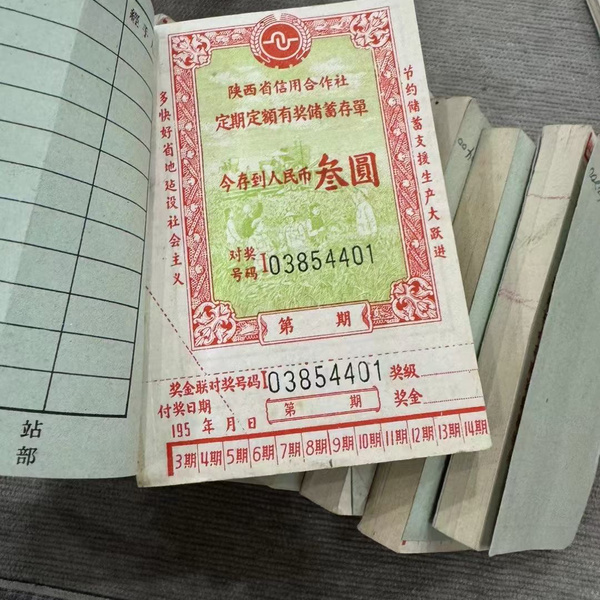 经手人
站
部
陕西省信用合作社
定期定額有奖储蓄存單
多快好省地建设社会主义
节约储蓄支援生产大跃进
今存到人民币叁圓
对奖
号码I03854401
第 期
奖金联对奖号码I03854401 奖级
付奖日期 第 期 奖金
195 年 月 日
3期 4期 5期 6期 7期 8期 9期 10期 11期 12期 13期 14期